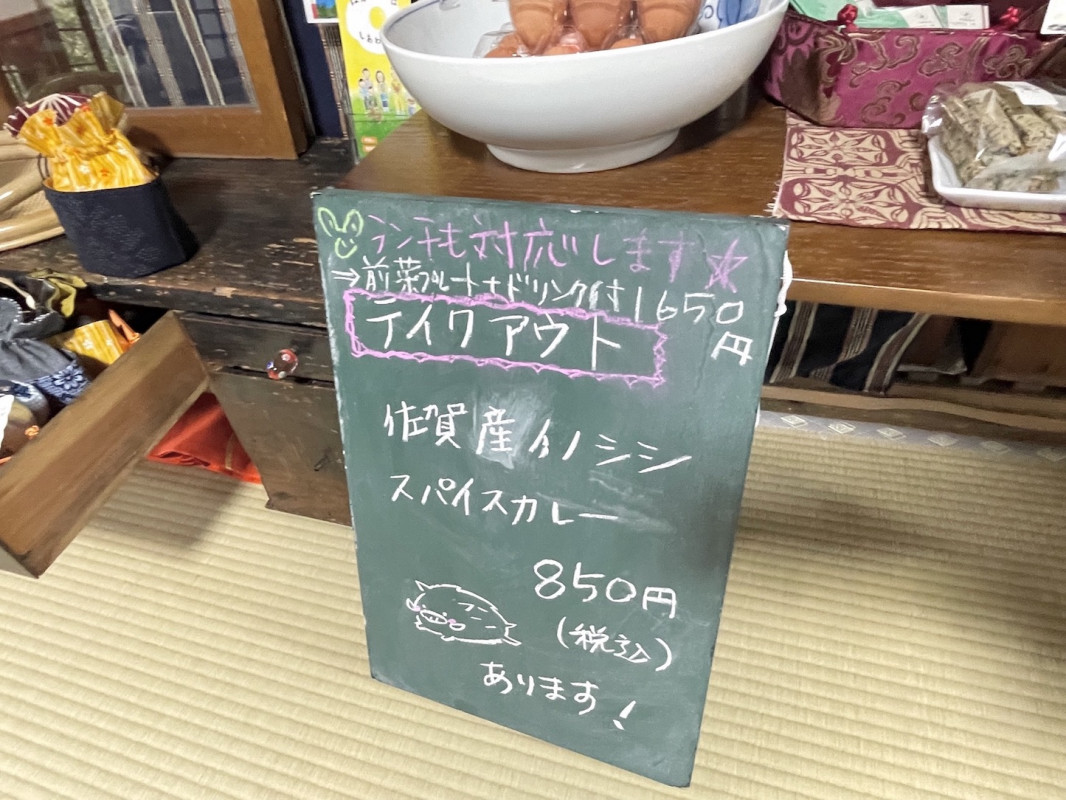 ランチも対応します☆
⇒前菜プレート+ドリンク付1650
円
テイクアウト
佐賀産イノシシ
スパイスカレー
850円
(税込)
あります!